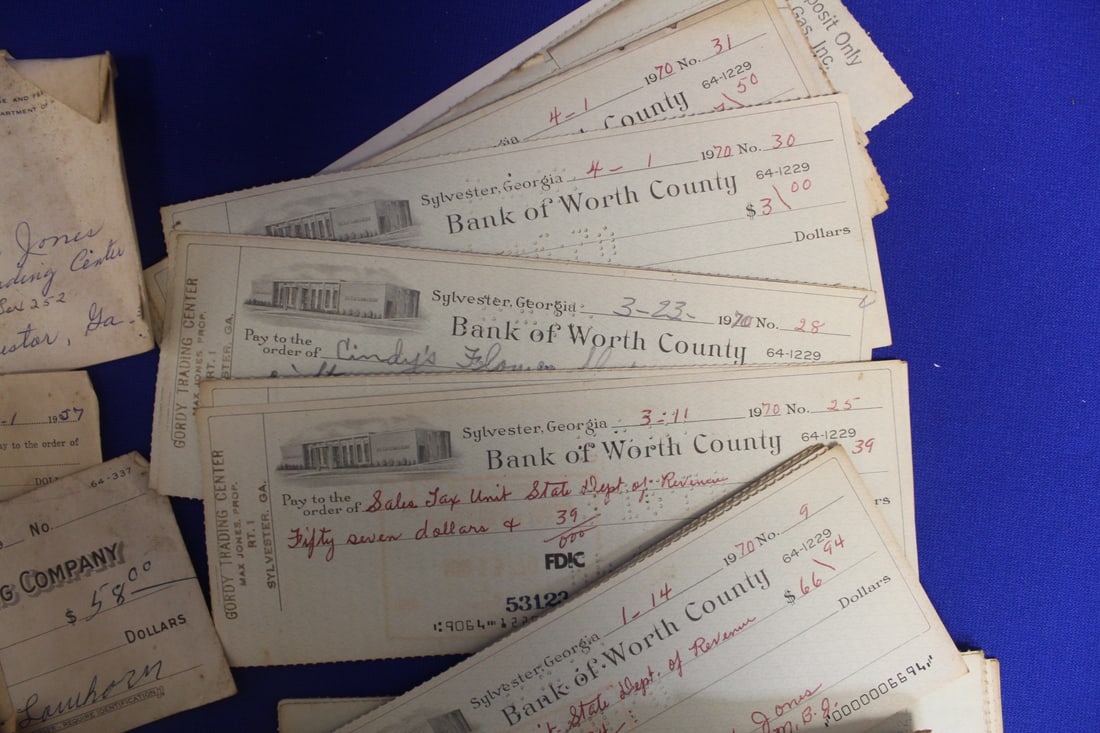 posit Only
Gas, Inc.
4-1 1970 No. 31
64-1229
County
50
Sylvester, Georgia 4-1 1970 No. 30
Bank of Worth County 64-1229
$3 00
Dollars
GORDY TRADING CENTER
MAX JONES, PROP.
RT. 1
SYLVESTER, GA.
Sylvester, Georgia 3-23- 1970 No. 28
Bank of Worth County 64-1229
Pay to the
order of Cindy's
GORDY TRADING CENTER
MAX JONES, PROP.
RT. 1
SYLVESTER, GA.
Sylvester, Georgia 3-11 1970 No. 25
Bank of Worth County 64-1229
39
Pay to the
order of Sales Tax Unit State Dept of Revenue
Fifty seven dollars & 39/000
FDIC
53122
Sylvester, Georgia 1-14 1970 No. 9
Bank of Worth County 64-1229
$66 94
State Dept. of Revenue
Dollars
Jones
0000006694
Jones
ading Center
Box 252
, Ga.
-1 1957
ay to the order of
64-337
No.
G COMPANY
$ 58 00
DOLLARS
Lawhorn
REQUIRE IDENTIFICATION